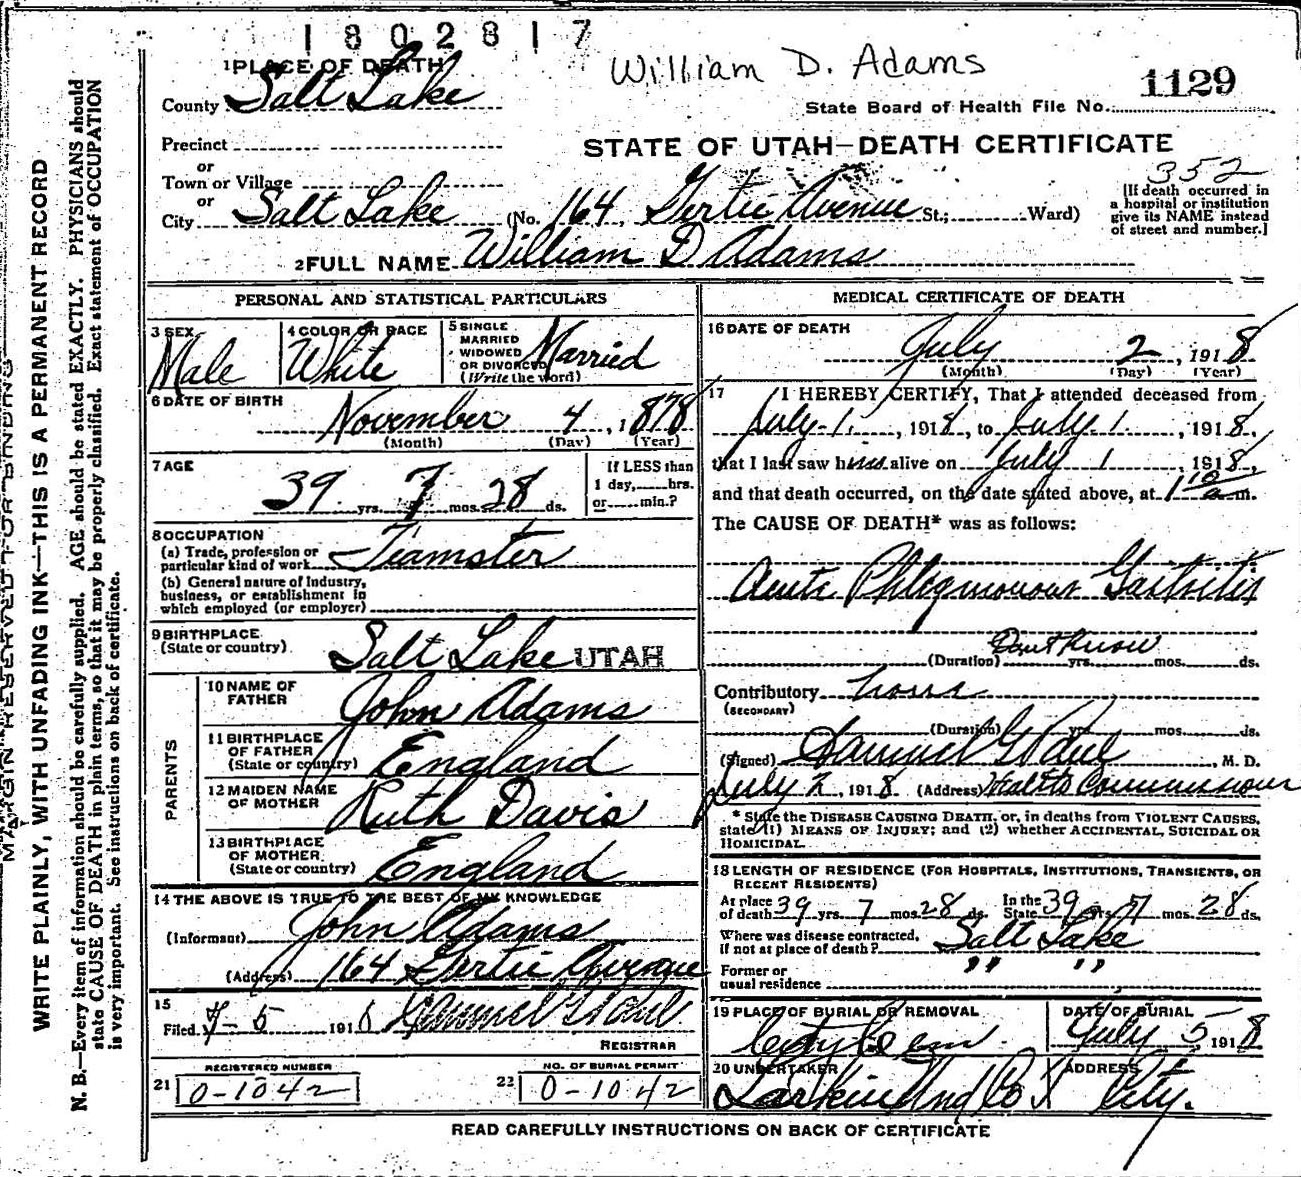 1802817
William D. Adams
1129
State Board of Health File No.
1 PLACE OF DEATH
County Salt Lake
Precinct
or
Town or Village
or
City Salt Lake (No. 164, Gertie Avenue St.; Ward)
STATE OF UTAH—DEATH CERTIFICATE
352
[If death occurred in
a hospital or institution
give its NAME instead
of street and number.]
2 FULL NAME William D Adams
PERSONAL AND STATISTICAL PARTICULARS
3 SEX
Male
4 COLOR OR RACE
White
5 SINGLE
MARRIED
WIDOWED
OR DIVORCED
(Write the word)
Married
6 DATE OF BIRTH
November 4, 1878
(Month) (Day) (Year)
7 AGE
39 yrs. 7 mos. 28 ds.
If LESS than
1 day, hrs.
or min.?
8 OCCUPATION
(a) Trade, profession or
particular kind of work Teamster
(b) General nature of Industry,
business, or establishment in
which employed (or employer)
9 BIRTHPLACE
(State or country)
Salt Lake UTAH
PARENTS
10 NAME OF
FATHER
John Adams
11 BIRTHPLACE
OF FATHER
(State or country)
England
12 MAIDEN NAME
OF MOTHER
Ruth Davis
13 BIRTHPLACE
OF MOTHER
(State or country)
England
14 THE ABOVE IS TRUE TO THE BEST OF MY KNOWLEDGE
(Informant) John Adams
(Address) 164 Gertie Avenue
15
Filed 7-5 1918 Samuel G Paul
REGISTRAR
REGISTERED NUMBER
21 0-1042
NO. OF BURIAL PERMIT
22 0-1042
MEDICAL CERTIFICATE OF DEATH
16 DATE OF DEATH
July 2, 1918
(Month) (Day) (Year)
17 I HEREBY CERTIFY, That I attended deceased from
July 1, 1918, to July 1, 1918,
that I last saw him alive on July 1, 1918,
and that death occurred, on the date stated above, at 1 10 a m.
The CAUSE OF DEATH* was as follows:
Acute Phlegmonous Gastritis
Dont Know
(Duration) yrs. mos. ds.
Contributory none
(SECONDARY)
(Duration) yrs. mos. ds.
(Signed) Samuel G Paul, M. D.
July 2, 1918 (Address) Health Commissioner
* State the DISEASE CAUSING DEATH, or, in deaths from VIOLENT CAUSES,
state (1) MEANS OF INJURY; and (2) whether ACCIDENTAL, SUICIDAL OR
HOMICIDAL.
18 LENGTH OF RESIDENCE (FOR HOSPITALS, INSTITUTIONS, TRANSIENTS, OR
RECENT RESIDENTS)
At place
of death 39 yrs. 7 mos. 28 ds.
In the
State 39 yrs. 7 mos. 28 ds.
Where was disease contracted,
if not at place of death? Salt Lake
Former or
usual residence " " " "
19 PLACE OF BURIAL OR REMOVAL
City Cem
DATE OF BURIAL
July 5, 1918
20 UNDERTAKER
Larkin Und Co
ADDRESS
City.
READ CAREFULLY INSTRUCTIONS ON BACK OF CERTIFICATE
MARGIN RESERVED FOR BINDING
WRITE PLAINLY, WITH UNFADING INK—THIS IS A PERMANENT RECORD
N. B.—Every item of information should be carefully supplied. AGE should be stated EXACTLY. PHYSICIANS should
state CAUSE OF DEATH in plain terms, so that it may be properly classified. Exact statement of OCCUPATION
is very important. See instructions on back of certificate.